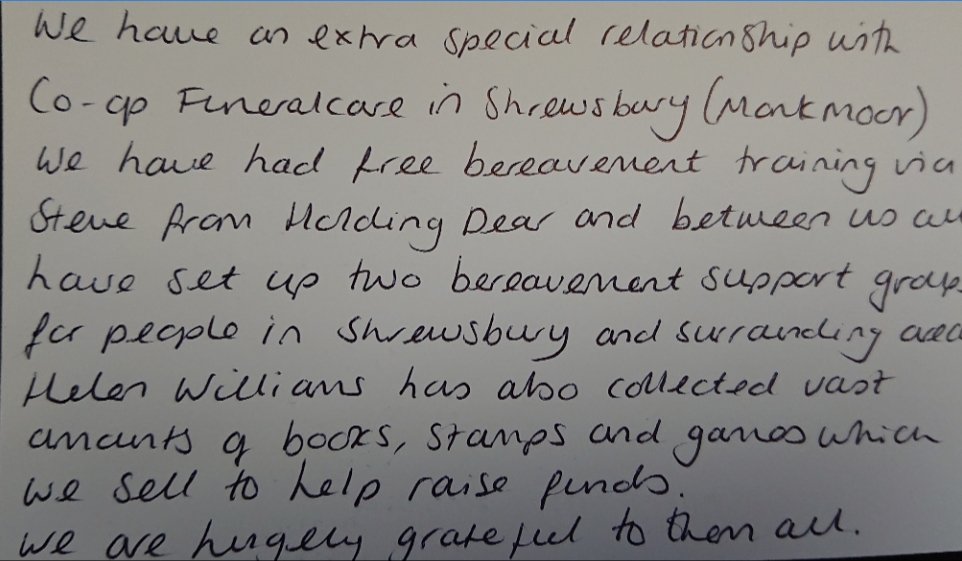 We have an extra special relationship with
Co-op Funeralcare in Shrewsbury (Monkmoor)
We have had free bereavement training via
Steve from Holding Dear and between us
have set up two bereavement support
for people in Shrewsbury and surrounding
Helen Williams has also collected vast
amounts of books, stamps and games which
we sell to help raise funds.
We are hugely grateful to them all.